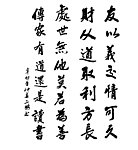 友以義交情可久
財從道取利方長
處世無他莫若為善
傳家有道還是讀書